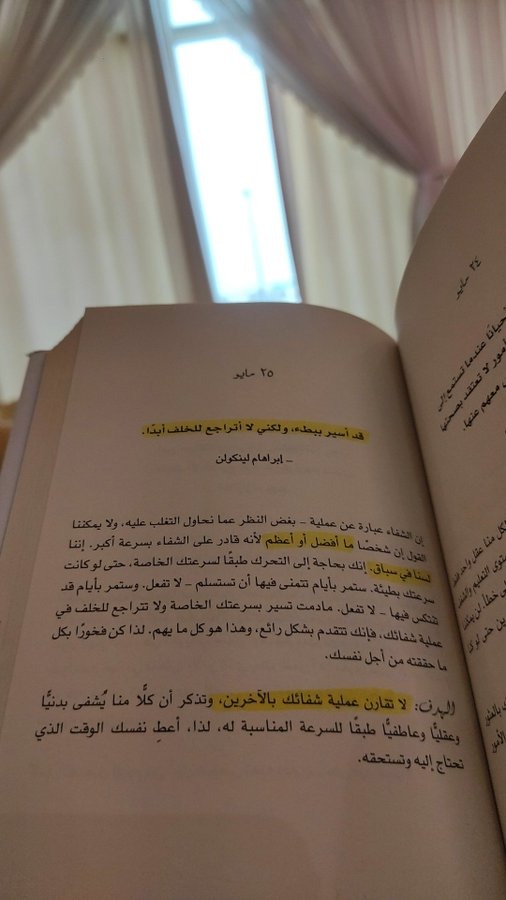 ٢٥ مايو
قد أسير ببطء، ولكني لا أتراجع للخلف أبدًا.
– إبراهام لينكولن
إن الشفاء عبارة عن عملية – بغض النظر عما نحاول التغلب عليه، ولا يمكننا
القول إن شخصًا ما أفضل أو أعظم لأنه قادر على الشفاء بسرعة أكبر. إننا
لسنا في سباق. إنك بحاجة إلى التحرك طبقًا لسرعتك الخاصة، حتى لو كانت
سرعتك بطيئة. ستمر بأيام تتمنى فيها أن تستسلم – لا تفعل. وستمر بأيام قد
تنتكس فيها – لا تفعل. مادمت تسير بسرعتك الخاصة ولا تتراجع للخلف في
عملية شفائك، فإنك تتقدم بشكل رائع، وهذا هو كل ما يهم. لذا كن فخورًا بكل
ما حققته من أجل نفسك.
الهدف: لا تقارن عملية شفائك بالآخرين، وتذكر أن كلًّا منا يُشفى بدنيًّا
وعقليًّا وعاطفيًّا طبقًا للسرعة المناسبة له، لذا، أعطِ نفسك الوقت الذي
تحتاج إليه وتستحقه.
٢٤ مايو
عندما تستمع إلى
أمور لا تعتقد بصحتها
معهم عنها.